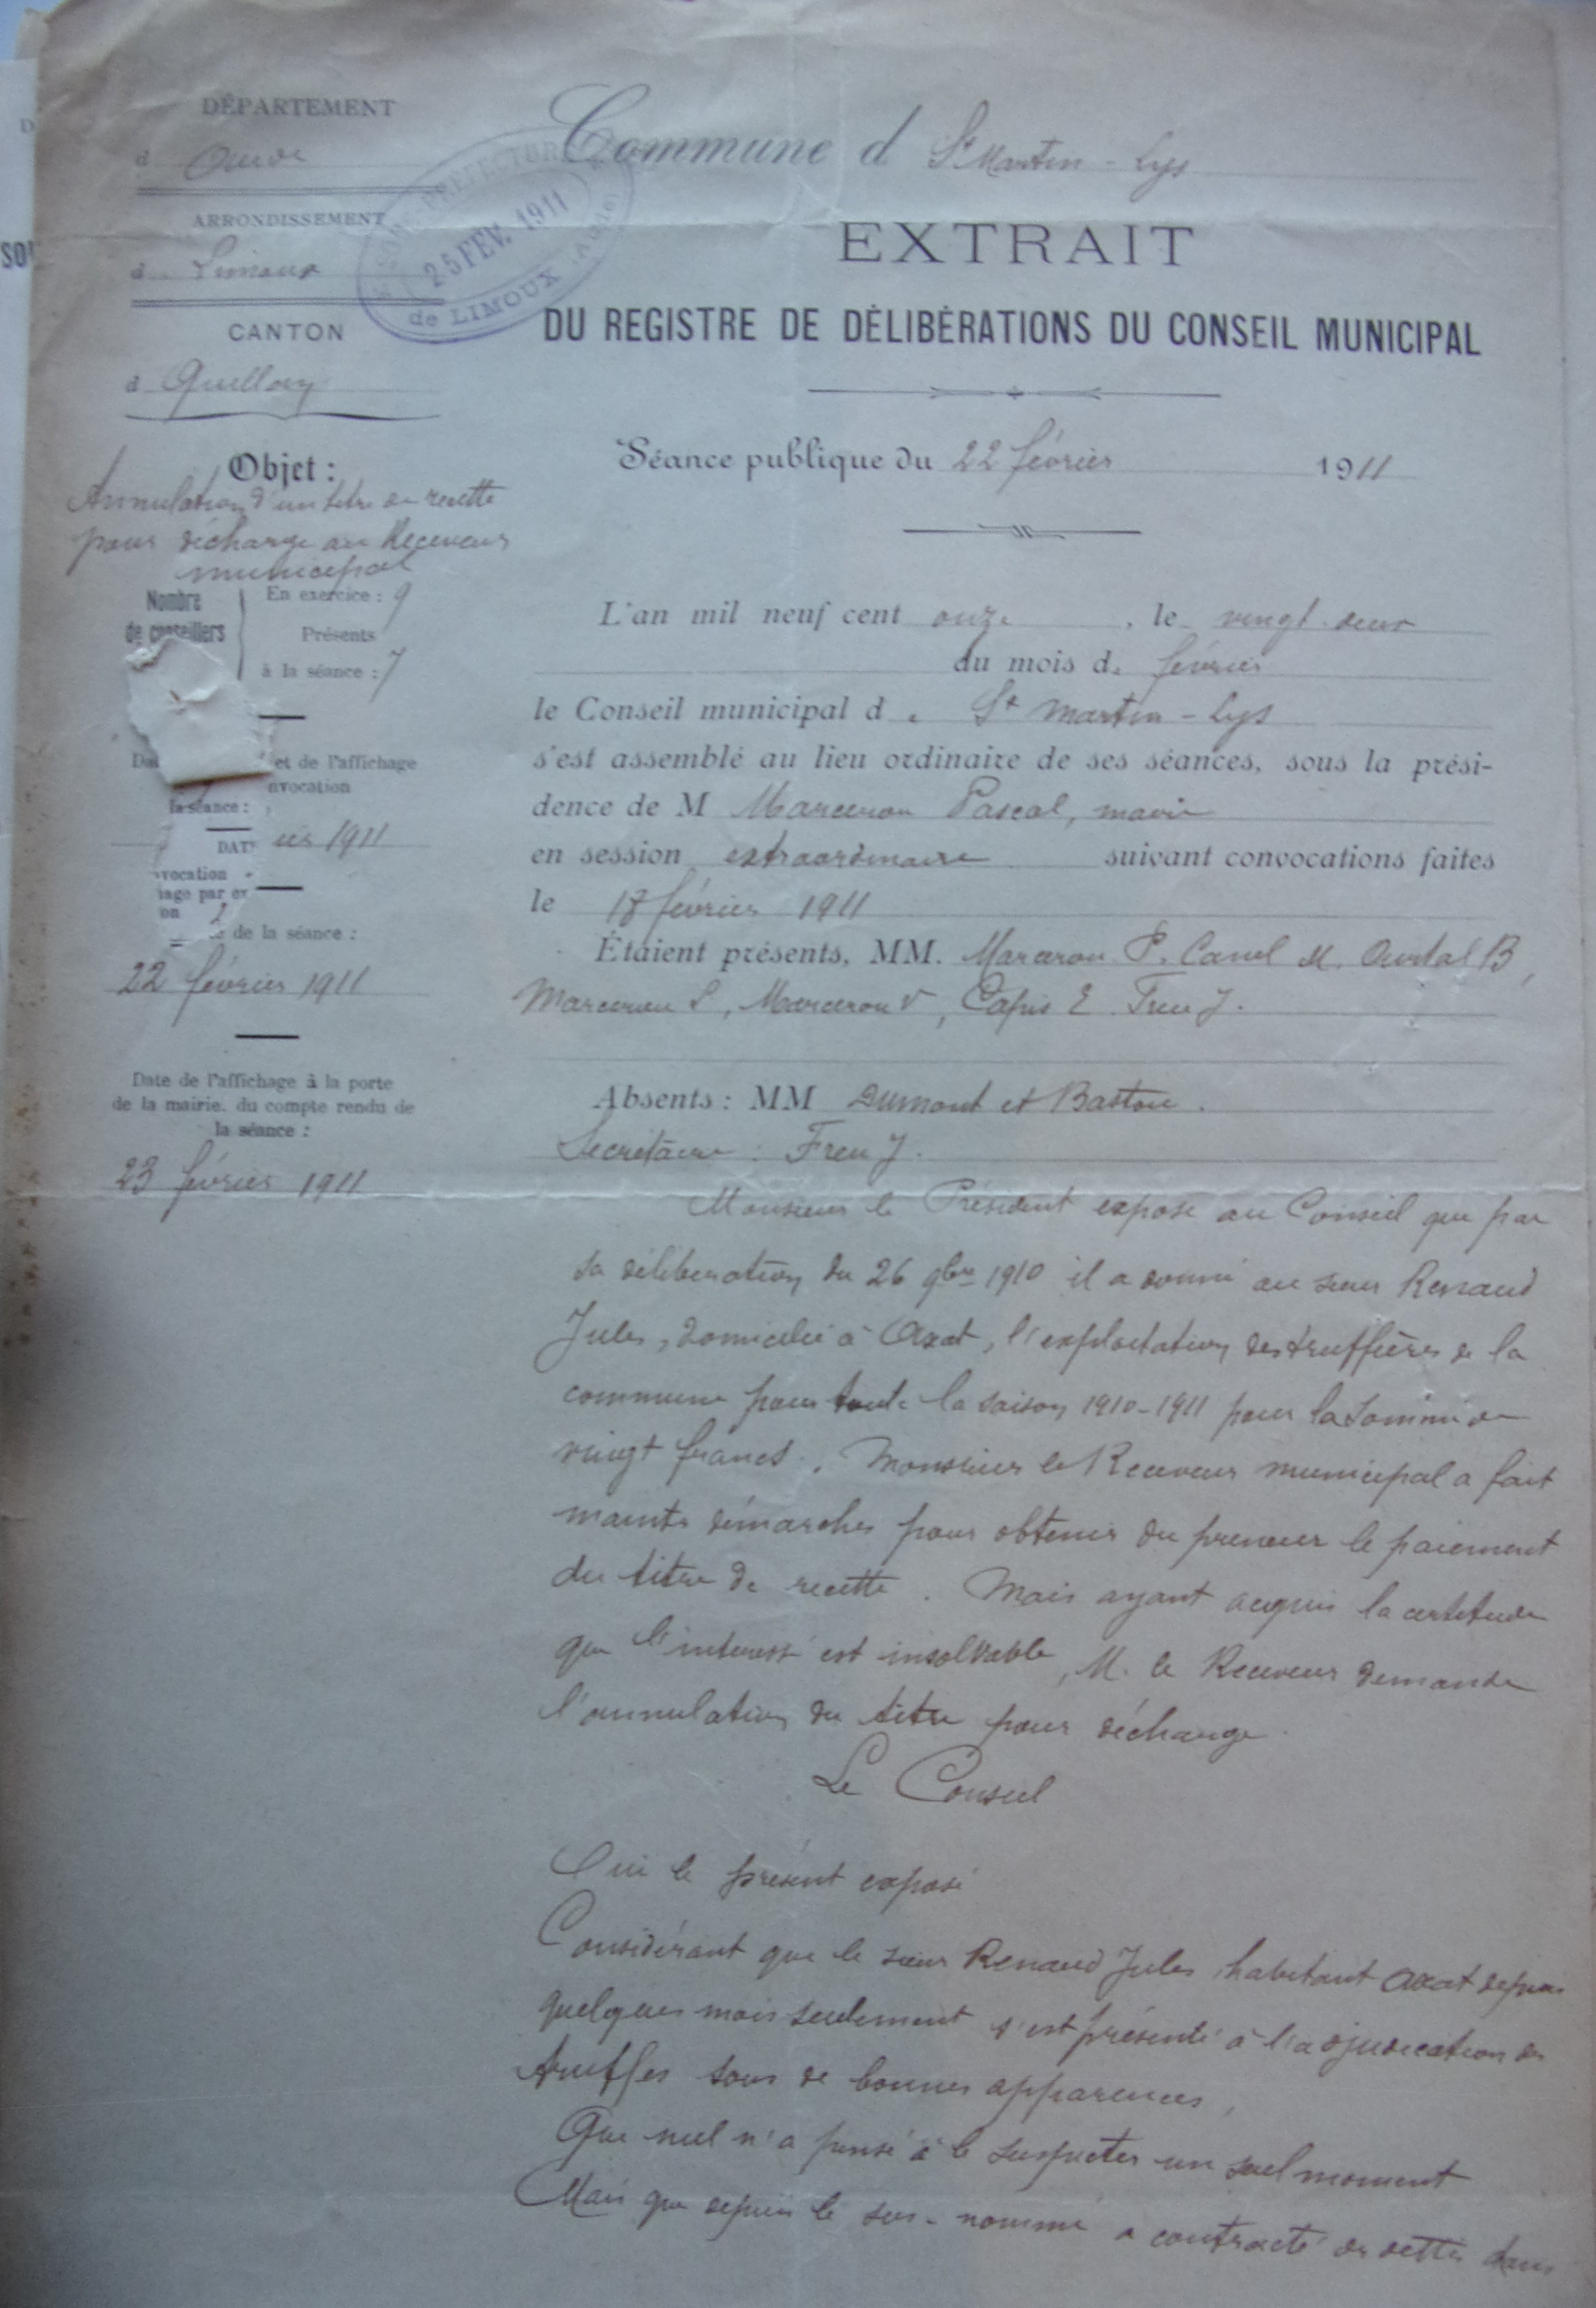 DÉPARTEMENT
d Aude
ARRONDISSEMENT
d Limoux
CANTON
d Quillan
SOUS-PRÉFECTURE
25 FEV. 1911
de LIMOUX (Aude)
Objet :
Annulation d'un titre de recette
pour décharge au Receveur
municipal
Nombre
de conseillers
En exercice : 9
Présents
à la séance : 7
et de l'affichage
nvocation
la séance :
DAT
ier 1911
vocation
age par ex
on
de la séance :
22 février 1911
Date de l'affichage à la porte
de la mairie, du compte rendu de
la séance :
23 février 1911
Commune d St Martin-Lys
EXTRAIT
DU REGISTRE DE DÉLIBÉRATIONS DU CONSEIL MUNICIPAL
Séance publique du 22 février 1911
L'an mil neuf cent onze, le vingt-deux
du mois de février
le Conseil municipal de St Martin-Lys
s'est assemblé au lieu ordinaire de ses séances, sous la prési-
dence de M Marceron Pascal, maire
en session extraordinaire suivant convocations faites
le 18 février 1911
Étaient présents, MM. Marceron P. Canel M. B,
Marceron S, Marceron V, Capis E. Freu J.
Absents : MM Dumont et Baston.
Secrétaire : Freu J.
Monsieur le Président expose au Conseil que par
sa délibération du 26 9bre 1910 il a donné au sieur Renaud
Jules, domicilié à Axat, l'exploitation des truffières de la
commune pour toute la saison 1910-1911 pour la somme de
vingt francs. Monsieur le Receveur municipal a fait
maintes démarches pour obtenir du preneur le paiement
du titre de recette. Mais ayant acquis la certitude
que l'intéressé est insolvable, M. le Receveur demande
l'annulation du titre pour décharge.
Le Conseil
Oui le présent exposé
Considérant que le sieur Renaud Jules habitant Axat depuis
quelques mois seulement s'est présenté à l'adjudication des
truffes sous de bonnes apparences,
Que nul n'a pensé à le suspecter un seul moment
Mais que depuis le sus-nommé a contracté des dettes dans